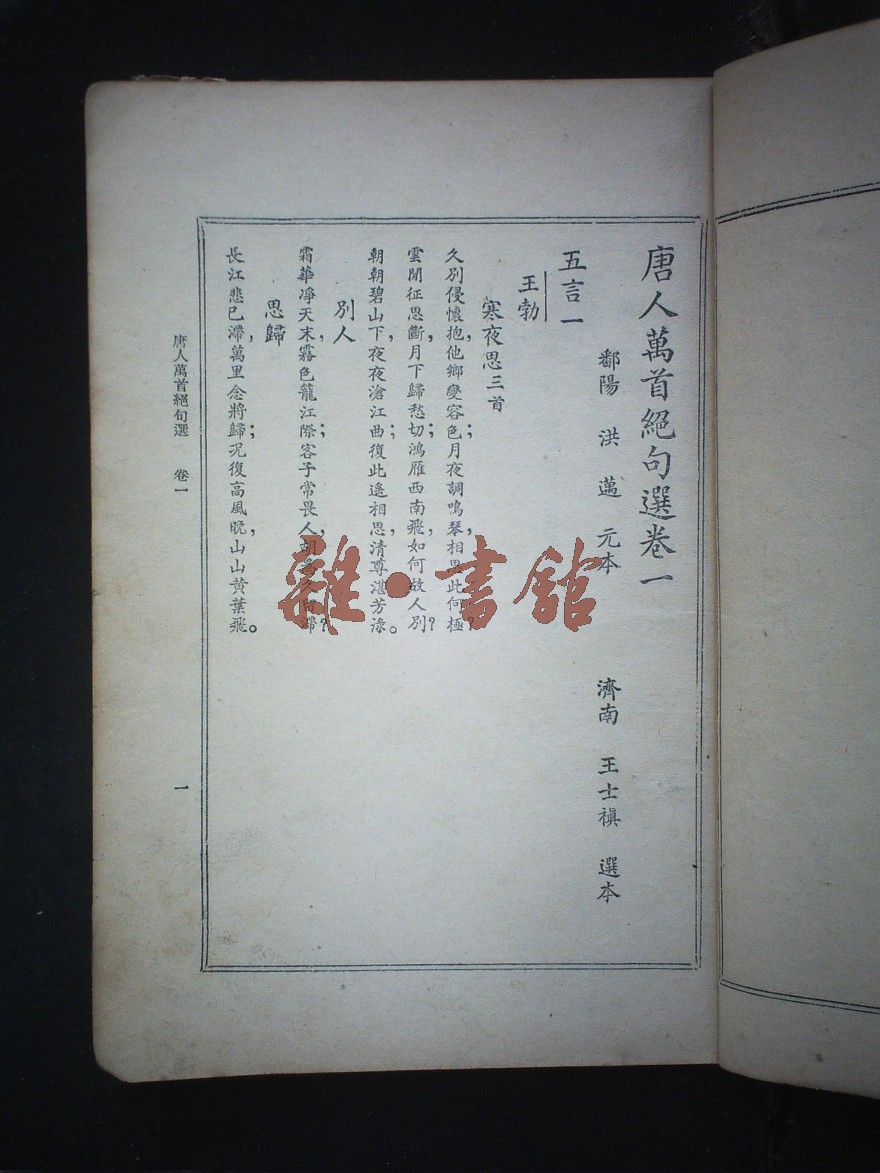 唐人萬首絕句選卷一
鄱陽 洪邁 元本 濟南 王士禛 選本
五言一
王勃
寒夜思三首
久別侵懷抱,他鄉變容色;月夜調鳴琴,相思此何極?
雲間征思斷,月下歸愁切;鴻雁西南飛,如何故人別?
朝朝碧山下,夜夜滄江曲;復此遙相思,清尊湛芳淥。
別人
霜華凈天末,霧色籠江際;客子常畏人,胡為久留滯?
思歸
長江悲已滯,萬里念將歸;況復高風晚,山山黃葉飛。
唐人萬首絕句選 卷一
一
雜·書館